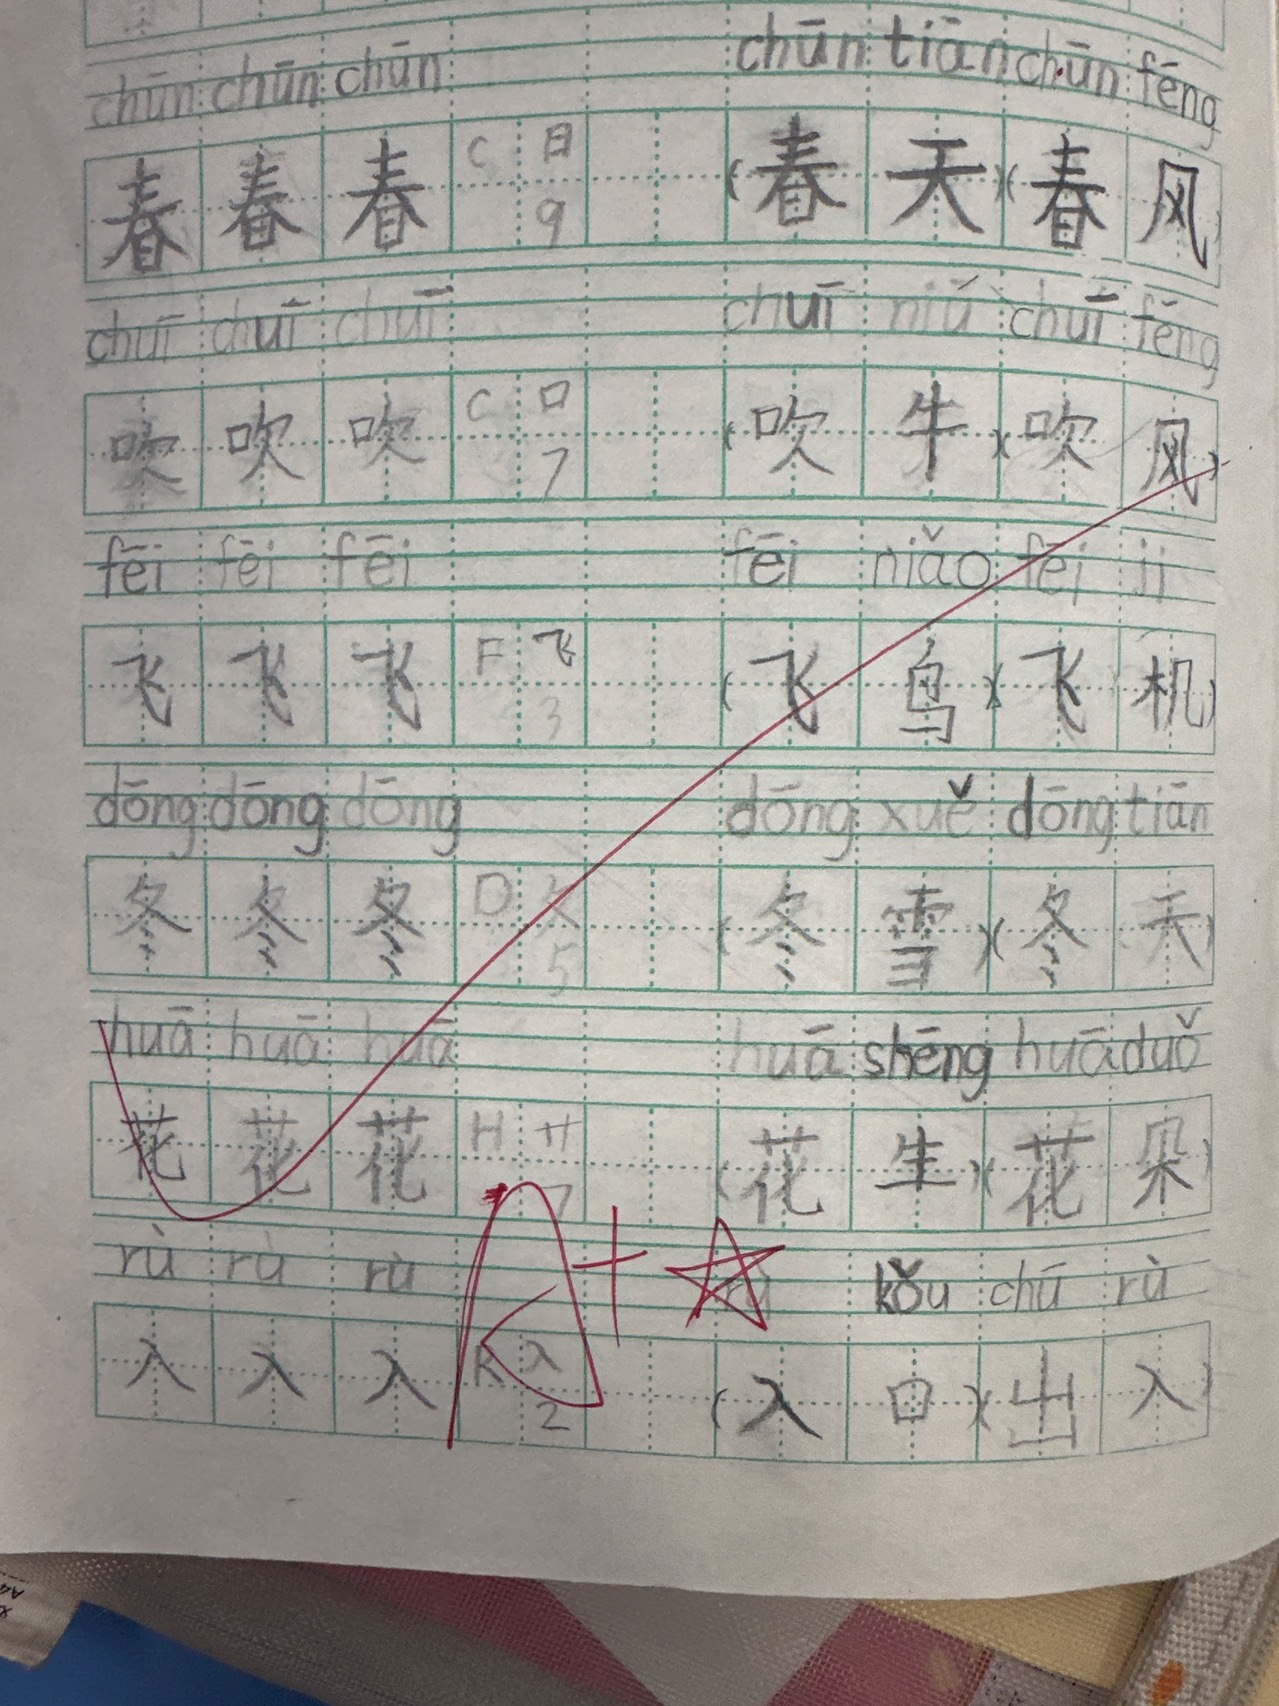 chūn chūn chūn chūn tiān chūn fēng
春 春 春 C 日 9 (春 天)(春 风)
chuī chuī chuī chuī niú chuī fēng
吹 吹 吹 C 口 7 (吹 牛)(吹 风)
fēi fēi fēi fēi niǎo fēi jī
飞 飞 飞 F 飞 3 (飞 鸟)(飞 机)
dōng dōng dōng dōng xuě dōng tiān
冬 冬 冬 D 夂 5 (冬 雪)(冬 天)
huā huā huā huā shēng huā duǒ
花 花 花 H 艹 7 (花 生)(花 朵)
rù rù rù rù kǒu chū rù
入 入 入 R 入 2 (入 口)(出 入)
A+